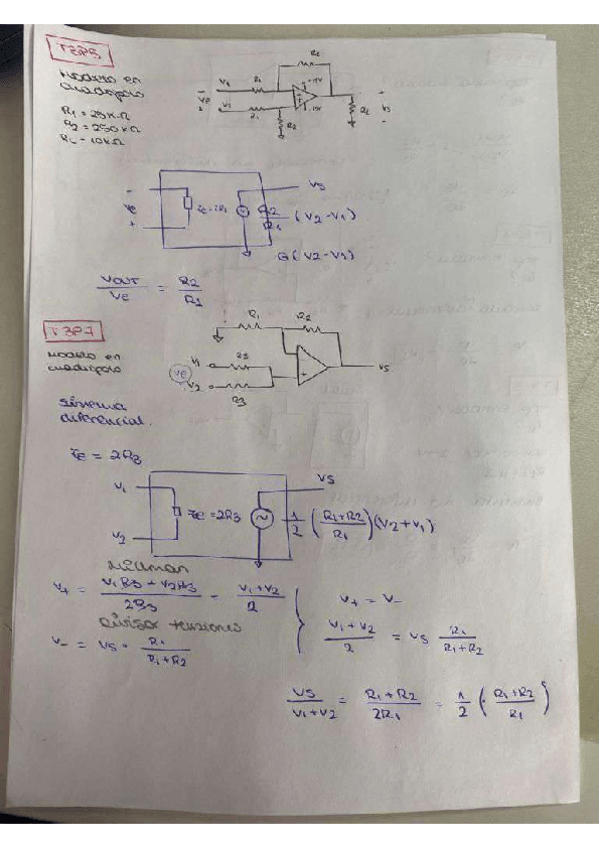 T3P5
Modelo en
cuadripolo
R1 = 25KΩ
R2 = 250KΩ
RL = 10KΩ
R2
V1 R1 +15V
Ve
V2 R1 -15V RL VS
R2
VS
Ve Ze=2R1 R2/R1 (V2-V1)
G(V2-V1)
VOUT/Ve = R2/R1
T3P7
Modelo en
cuadripolo
R1 R2
V1 R3
Ve VS
V2 R3
Sistema
diferencial.
Ze = 2R3
V1 VS
Ze=2R3 1/2 (R1+R2/R1)(V2+V1)
V2
Millman
V+ = V1R3+V2R3/2R3 = V1+V2/2
divisor tensiones
V- = VS · R1/R1+R2
V+ = V-
V1+V2/2 = VS R1/R1+R2
VS/V1+V2 = R1+R2/2R1 = 1/2 · (R1+R2/R1)